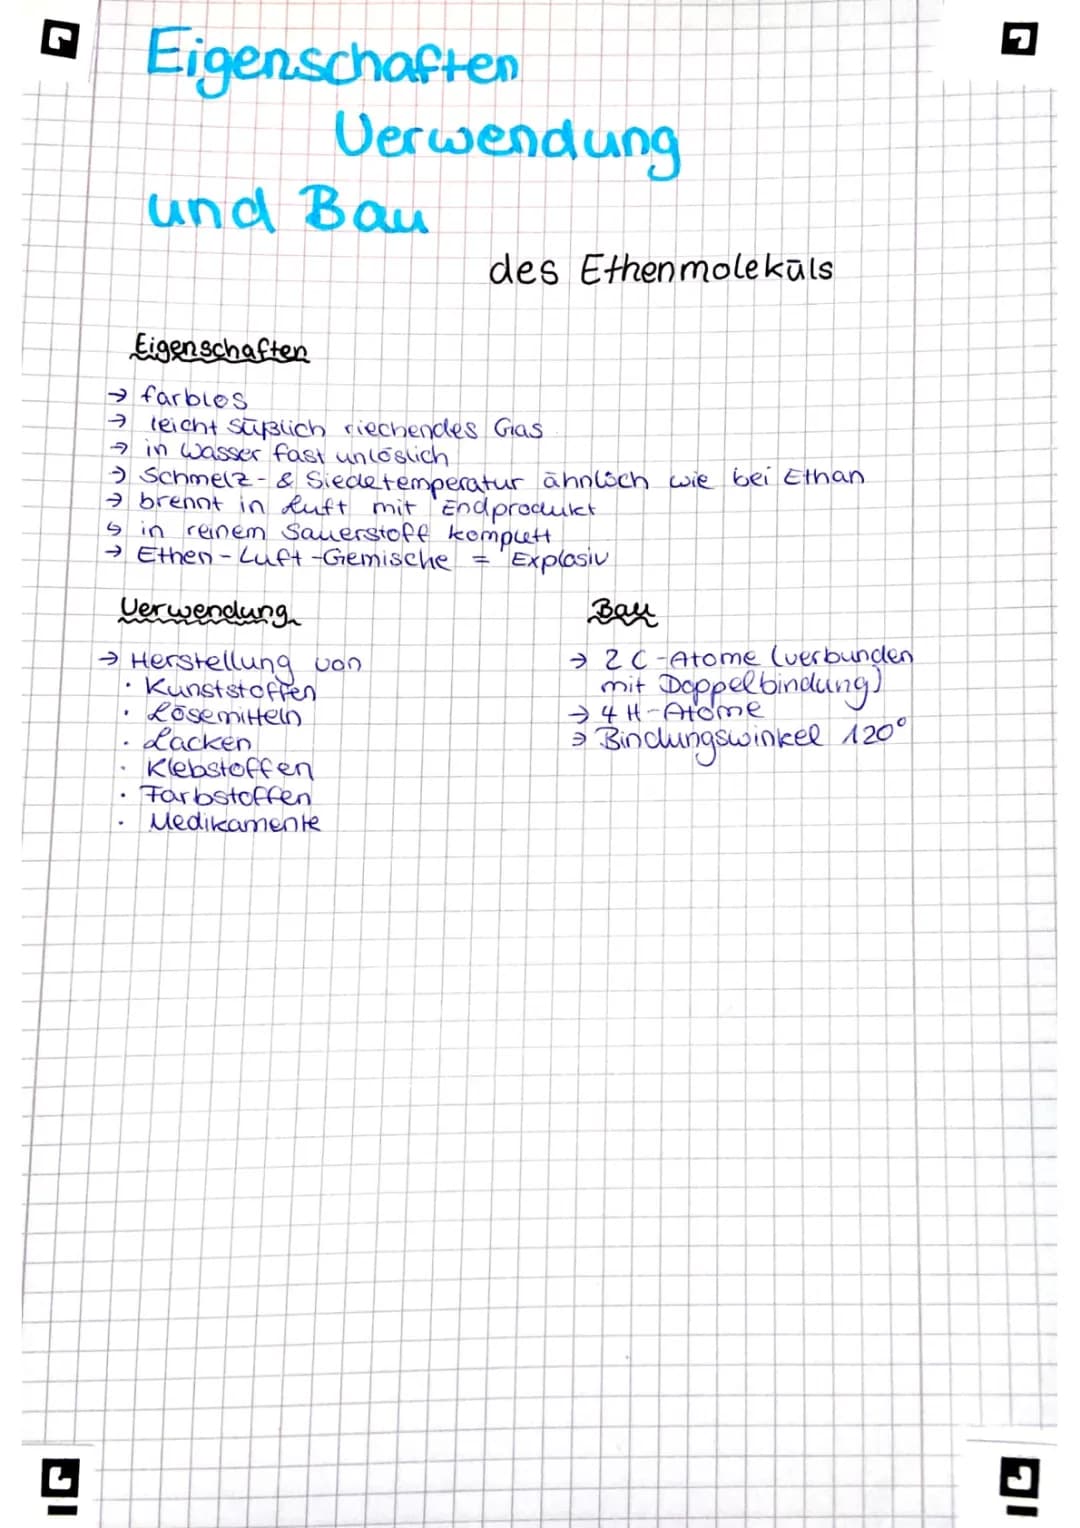 Eigenschaften
Verwendung
und Bau
des Ethenmoleküls
Eigenschaften
→ farblos
→ leicht süßlich riechendes Gas
→ in Wasser fast unlöslich
→ Schmelz- & Siedetemperatur ähnlich wie bei Ethan
→ brennt in Luft mit Endprodukt
↳ in reinem Sauerstoff komplett
→ Ethen-Luft-Gemische = Explosiv
Verwendung
→ Herstellung von
· Kunststoffen
· Lösemitteln
· Lacken
· Klebstoffen
· Farbstoffen
· Medikamente
Bau
→ 2 C-Atome (verbunden
mit Doppelbindung)
→ 4 H-Atome
→ Bindungswinkel 120°